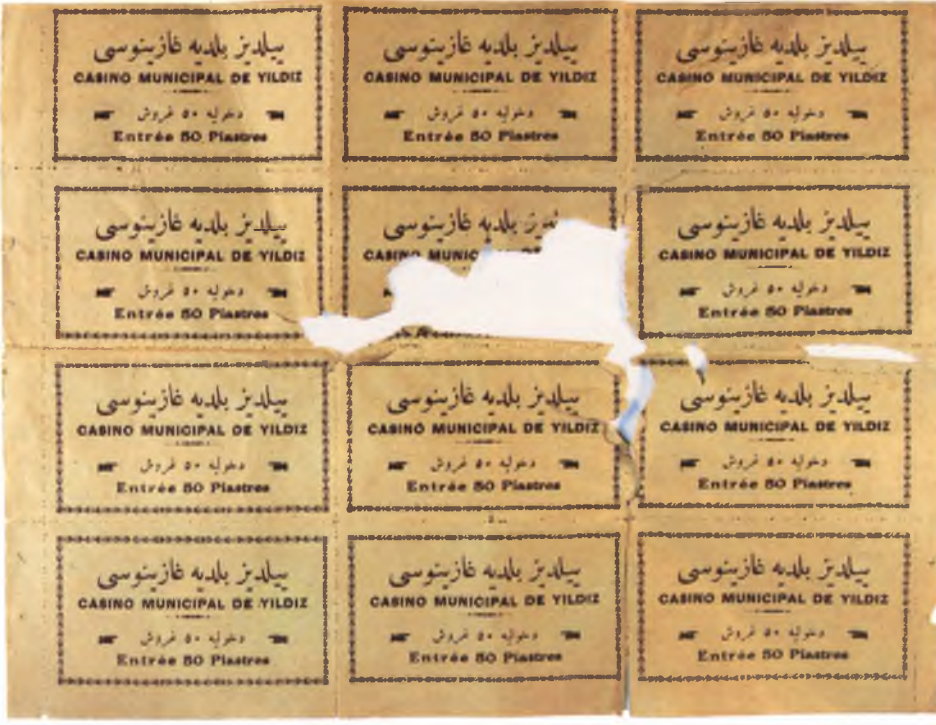 ييلديز بلديه غازينوسى
CASINO MUNICIPAL DE YILDIZ
دخوليه ٥٠ غروش
Entrée 50 Piastres
ييلديز بلديه غازينوسى
CASINO MUNICIPAL DE YILDIZ
دخوليه ٥٠ غروش
Entrée 50 Piastres
ييلديز بلديه غازينوسى
CASINO MUNICIPAL DE YILDIZ
دخوليه ٥٠ غروش
Entrée 50 Piastres
ييلديز بلديه غازينوسى
CASINO MUNICIPAL DE YILDIZ
دخوليه ٥٠ غروش
Entrée 50 Piastres
بلديه غازينوسى
CASINO MUNIC
ييلديز بلديه غازينوسى
CASINO MUNICIPAL DE YILDIZ
دخوليه ٥٠ غروش
Entrée 50 Piastres
ييلديز بلديه غازينوسى
CASINO MUNICIPAL DE YILDIZ
دخوليه ٥٠ غروش
Entrée 50 Piastres
ييلديز بلديه غازينوسى
CASINO MUNICIPAL DE YILDIZ
دخوليه ٥٠ غروش
Entrée 50 Piastres
ييلديز بلديه غازينوسى
CASINO MUNICIPAL DE YILDIZ
دخوليه ٥٠ غروش
Entrée 50 Piastres
ييلديز بلديه غازينوسى
CASINO MUNICIPAL DE YILDIZ
دخوليه ٥٠ غروش
Entrée 50 Piastres
ييلديز بلديه غازينوسى
CASINO MUNICIPAL DE YILDIZ
دخوليه ٥٠ غروش
Entrée 50 Piastres
ييلديز بلديه غازينوسى
CASINO MUNICIPAL DE YILDIZ
دخوليه ٥٠ غروش
Entrée 50 Piastres